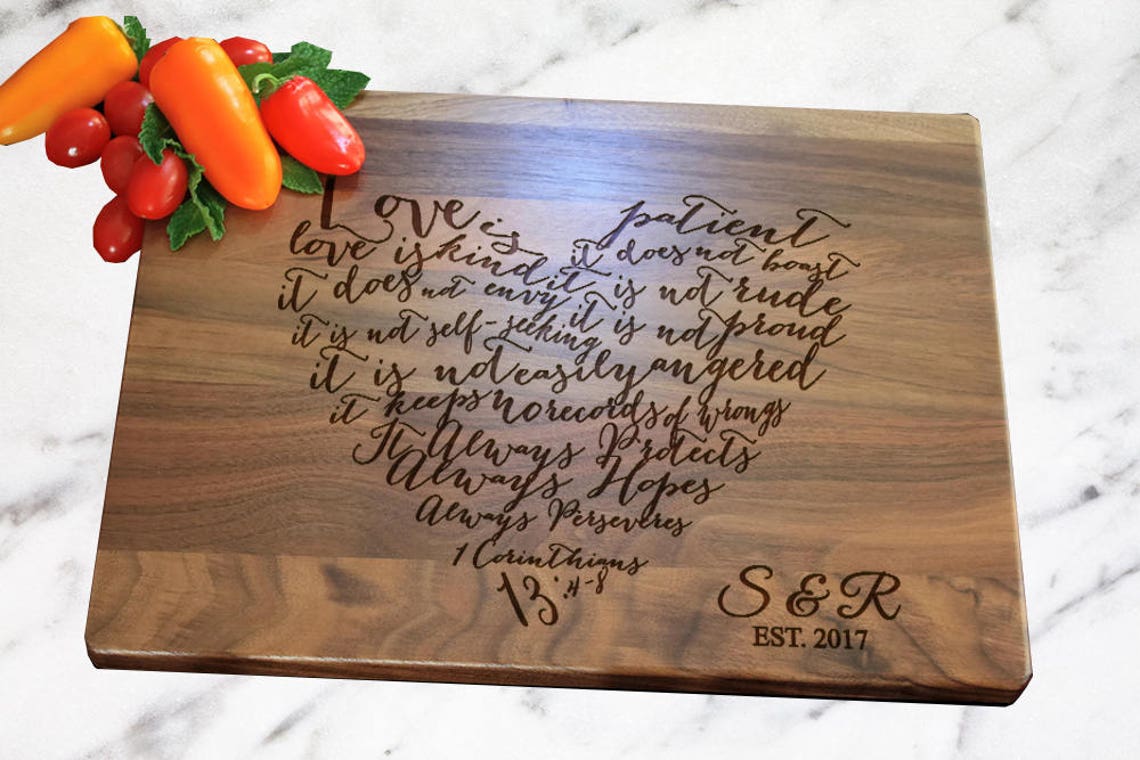 Love is patient
love is kind it does not boast
it does not envy it is not rude
it is not self-seeking it is not proud
it is not easily angered
it keeps no records of wrongs
It Always Protects
Always Hopes
Always Perseveres
1 Corinthians
13:4-8
S & R
EST. 2017